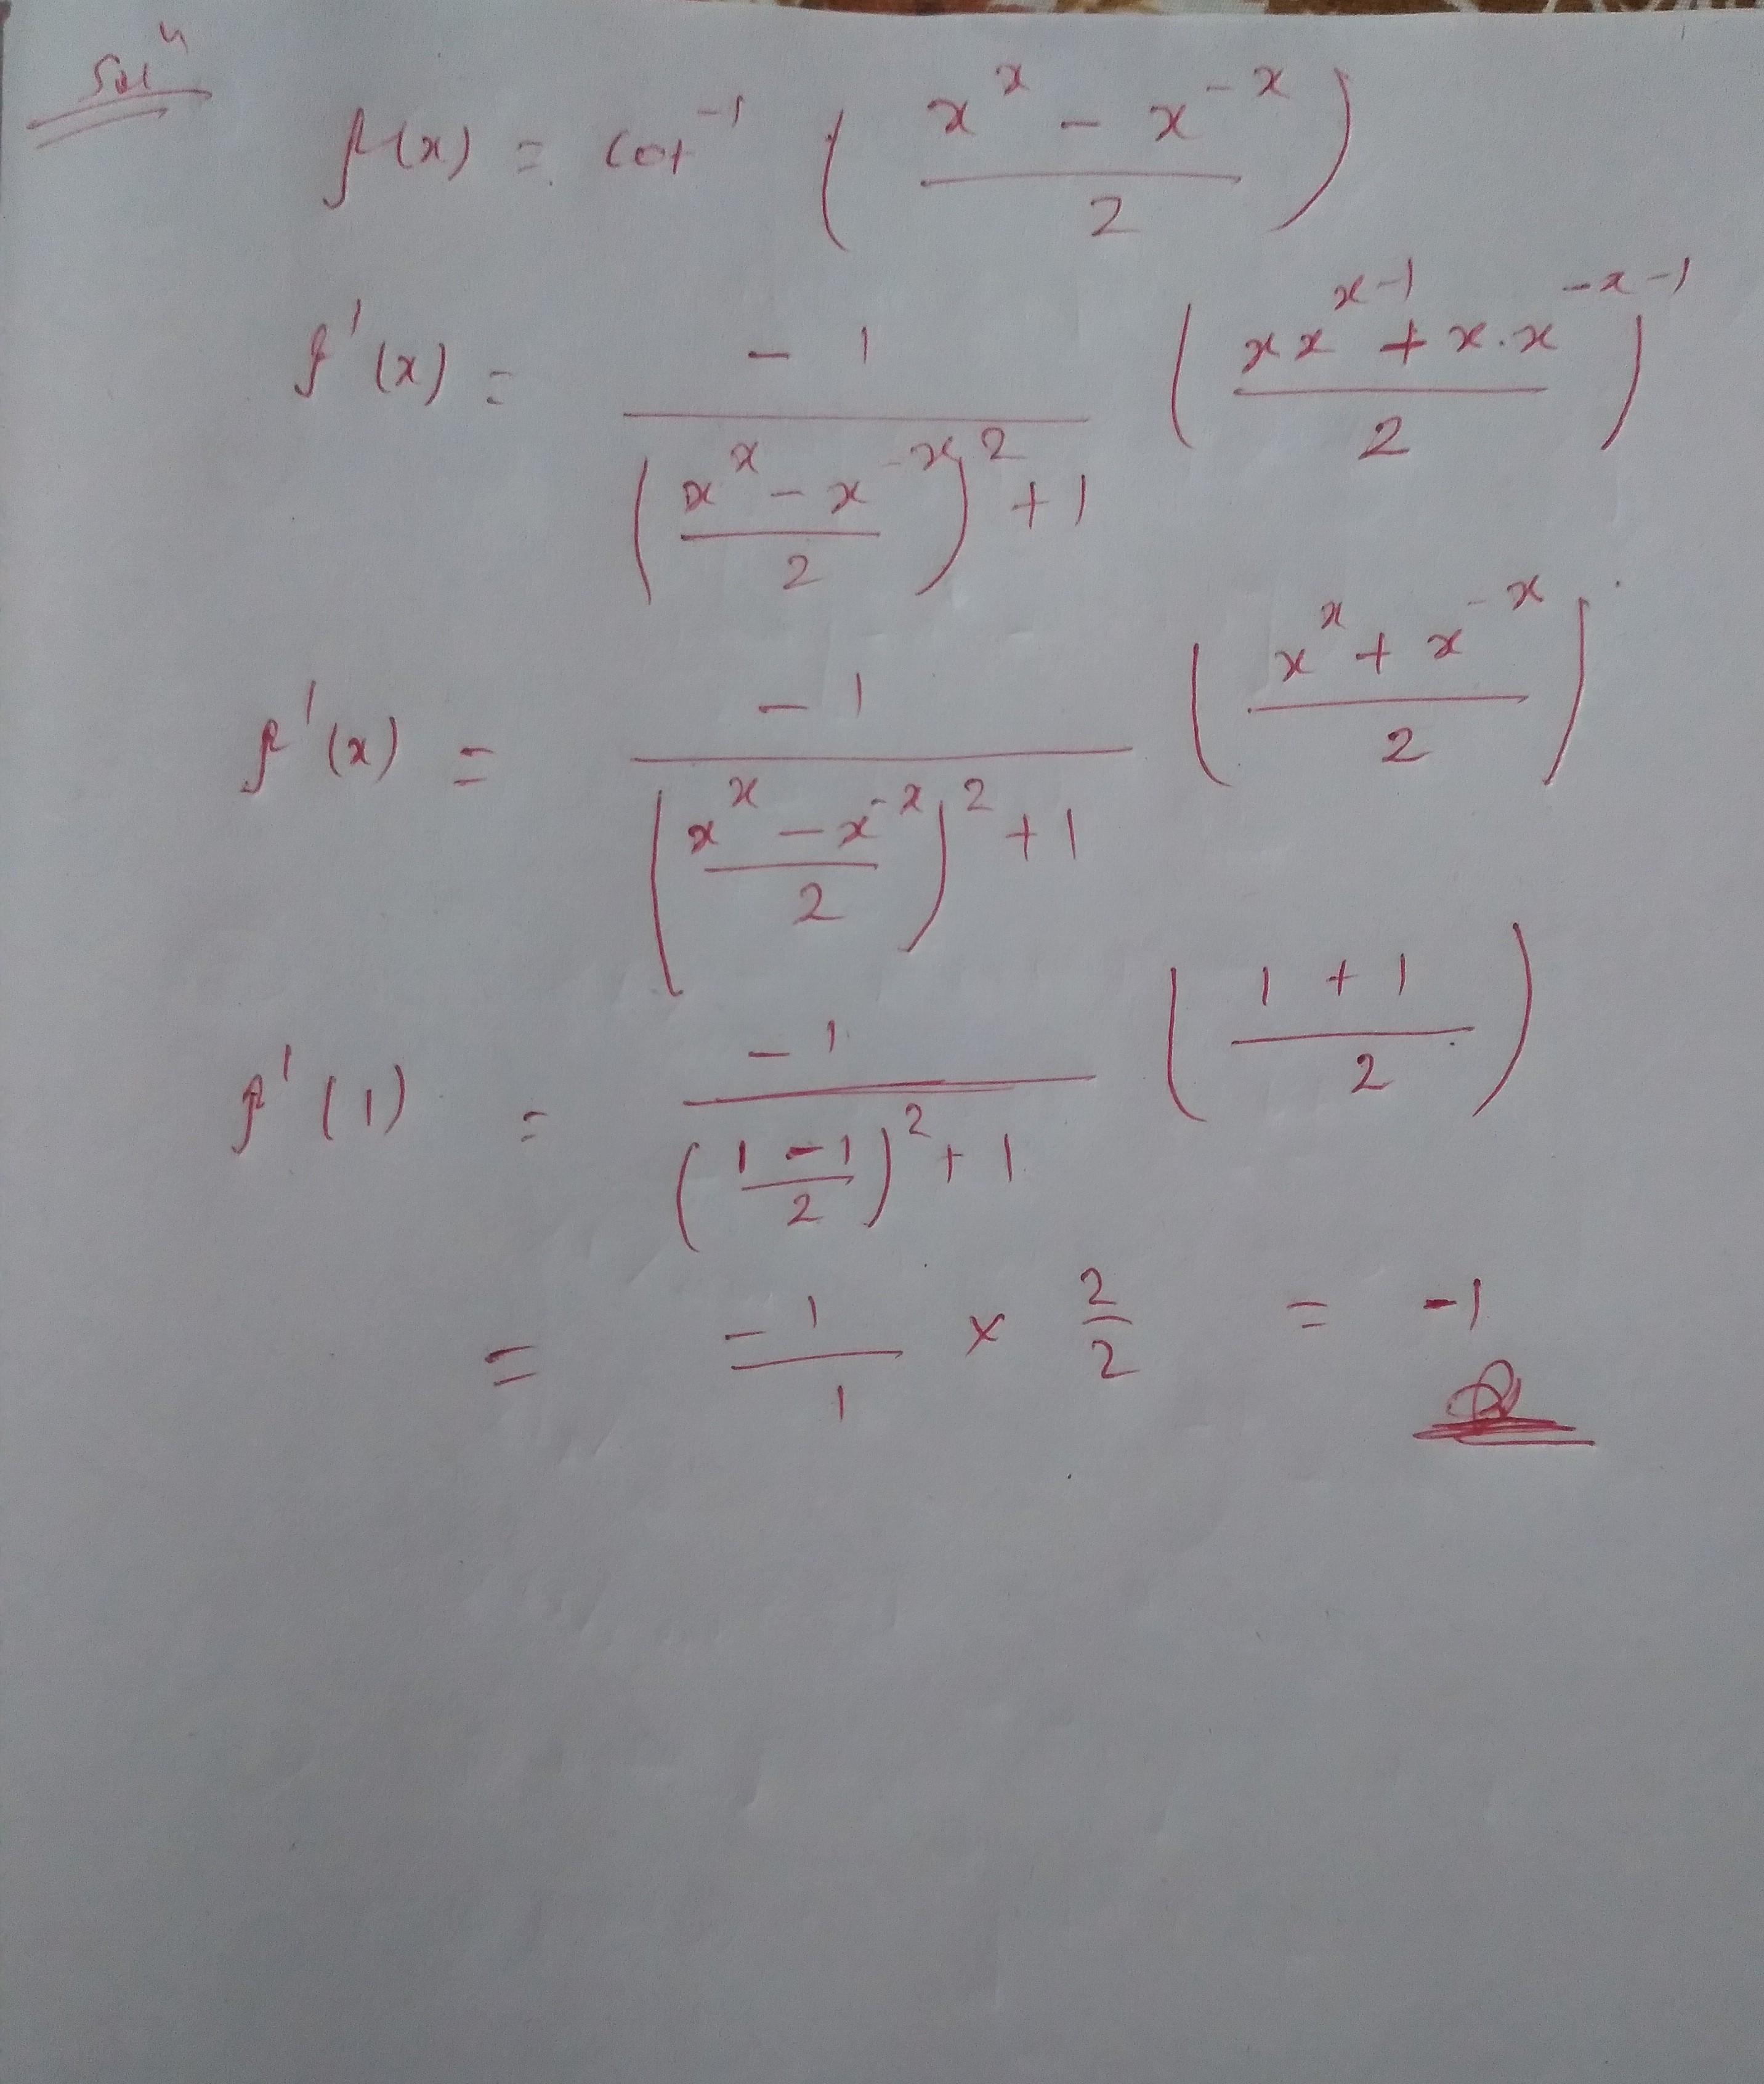 Solⁿ
f(x) = cot⁻¹ ( (x^x - x^(-x)) / 2 )
f'(x) = -1 / ( ((x^x - x^(-x)) / 2)² + 1 ) ( (x x^(x-1) + x·x^(-x-1)) / 2 )
f'(x) = -1 / ( ((x^x - x^(-x)) / 2)² + 1 ) ( (x^x + x^(-x)) / 2 )
f'(1) = -1 / ( ((1 - 1) / 2)² + 1 ) ( (1 + 1) / 2 )
= -1 / 1 × 2 / 2 = -1